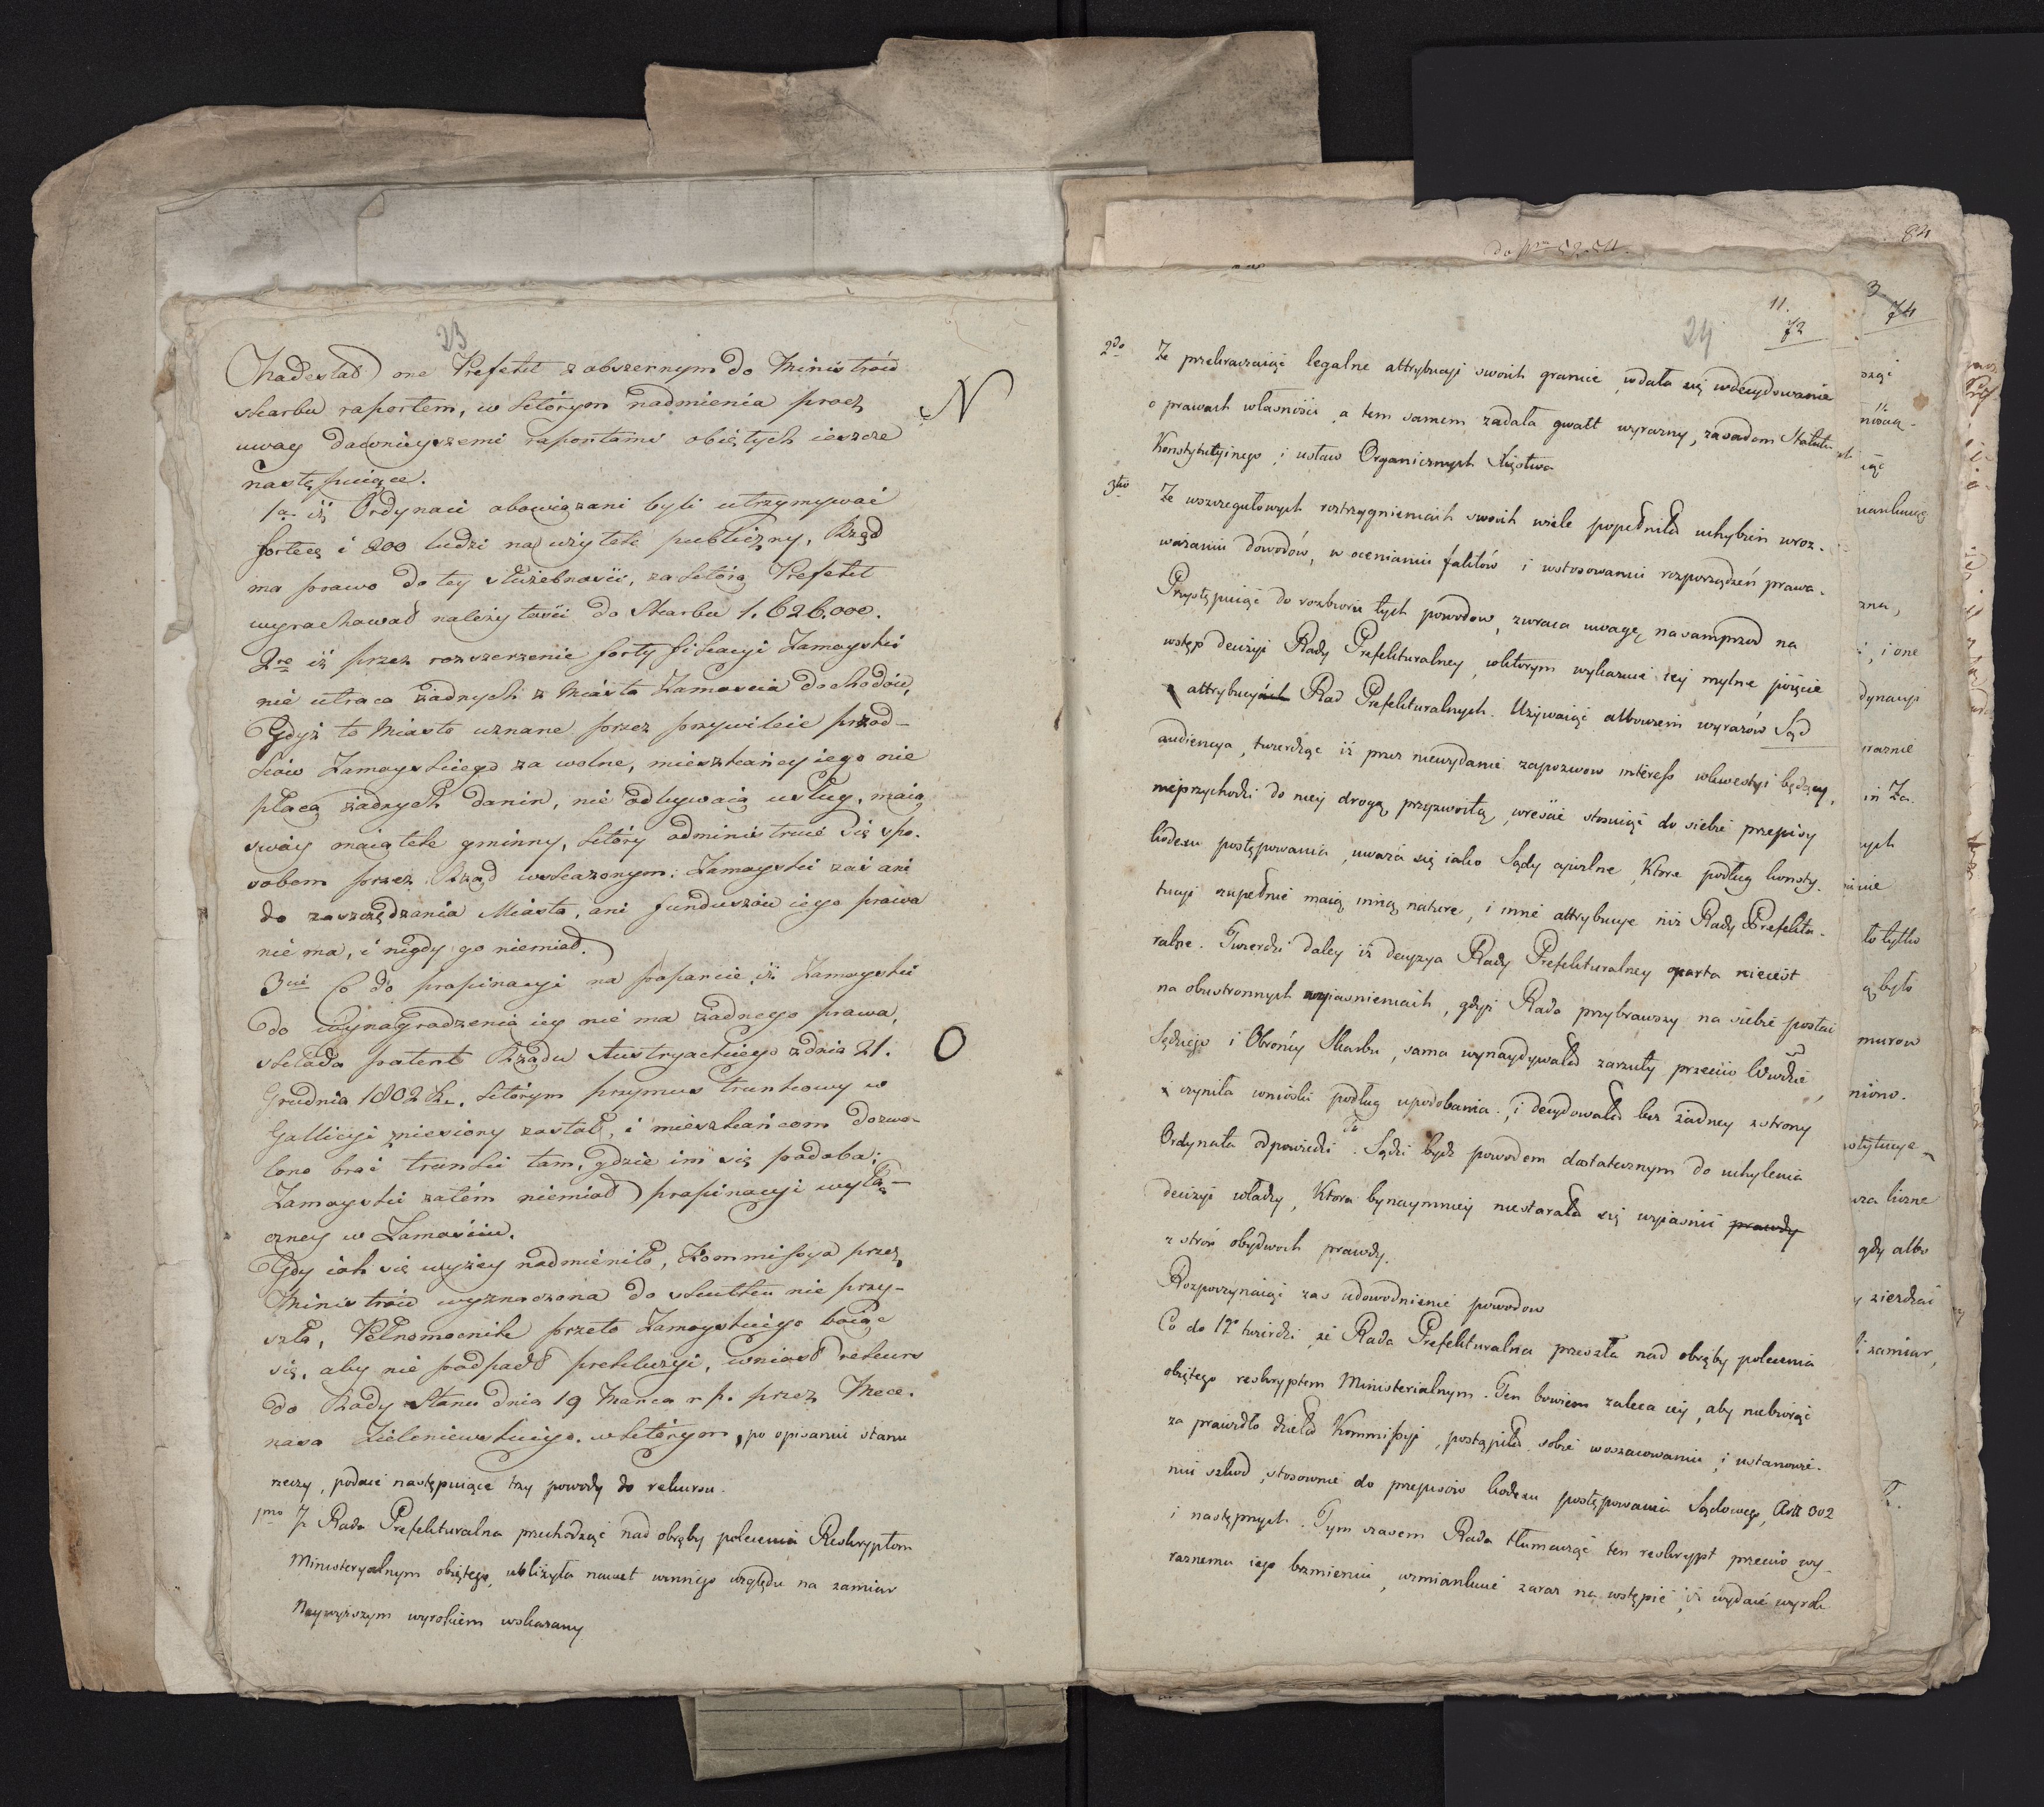 23
Nadesłał one Prefekt z obszernym do Ministrów
skarbu raportem, w którym nadmienia procz
uwag dawnieyszemi raportami obiętych ieszcze
następuiące.
N
1a iż Ordynaci obowiązani byli utrzymywać
fortecę i 200 ludzi na użytek publiczny, Rząd
ma prawo do tey służebności, za którą Prefekt
wyrachował należytości do Skarbu 1.626.000.
2re iż przez rozszerzenie fortyfikacyi Zamoyski
nie utraca żadnych z Miasta Zamościa dochodów,
Gdyż to Miasto uznane przez przywileie przod-
ków Zamoyskiego za wolne, mieszkańcy iego nie
płacą żadnych danin, nie odbywaią usług, maią
swóy maiątek gminny, który administruie się spo-
sobem przez Rząd wskazonym: Zamoyski zaś ani
do zarządzania Miasta, ani funduszów iego prawa
nie ma, i nigdy go niemiał.
3cie Co do propinacyi na poparcie iż Zamoyski
do wynagrodzenia iey nie ma żadnego prawa,
składa patent Rządu Austryackiego z dnia 21.
O
Grudnia 1802 R. którym przymus trunkowy w
Gallicyi zniesiony został, i mieszkańcom dozwo-
lono brać trunki tam, gdzie im się podoba;
Zamoyski zatém niemiał propinacyi wyłą-
czney w Zamościu.
Gdy iak się wyżey nadmieniło, Kommissya przez
Ministrów wyznaczona do skutku nie przy-
szła, Pełnomocnik przeto Zamoyskiego boiąc
się, aby nie podpadł prekluzyi, wniósł rekurs
do Rady Stanu dnia 19 Marca r. p. przez Mece-
nasa Zieleniewskiego. w którym, po opisaniu stanu
rzeczy, podaie następuiące trzy powody do rekursu.
1mo Ż Rada Prefekturalna przechodząc nad obręby polecenia Reskryptom
Ministeryalnym obiętego, ubliżyła nawet winnego względu na zamiar
Naywyższym wyrokiem wskazany
do Nru 52.54.
84
3
74
11.
72
24
2do Że przekraczaiąc legalne attrybucyi swoich granice, wdała się w decydowanie
o prawach własności, a tem samem zadała gwałt wyrazny, zasadom Statutu
Konstytucyinego i ustaw Organicznych Xięstwa
3tio Że wszczegułowych roztrzygnieniach swoich wiele popełniła uchybień w roz-
ważaniu dowodów, w ocenianiu faktów i wstosowaniu rozporządzeń prawa.
Przystępuiąc do rozbioru tych powodow, zwraca uwagę nasamprzod na
wstęp decizyi Rady Prefekturalney, wktorym wykazuie iey mylne poięcie
attrybucyiach Rad Prefekturalnych. Używaiąc albowiem wyrazów Sąd
audiencya, twierdząc iż przez niewydanie zapozwow interess wkwestyi będący,
nieprzychodzi do niey drogą przyzwoitą, wreście stosuiąc do siebie przepisy
kodexu postępowania, uważa się iako Sądy cywilne, Ktore podług konsty-
tucyi zupełnie maią inną nature, i inne attrybucye niż Rady Prefektu-
ralne. Twierdzi daley iż decyzya Rady Prefekturalney oparta nieiest
na obustronnych wyiasnieniach, gdyż Rada przybrawszy na siebie postać
Sędziego i Obrońcy Skarbu, sama wynaydywała zarzuty przeciw
i czyniła wnioski podług upodobania, i decydowała bez żadney z strony
Ordynata odpowiedzi. To Sądzi bydź powodem dostatecznym do uchylenia
decizyi władzy, Ktora bynaymniey niestarała się wyiasnić prawdy
z stron obydwoch prawdy.
Rozpoczynaiąc zas udowodnienie powodow
Co do 1go twierdzi, że Rada Prefekturalna przeszła nad obręby polecenia
obiętego reskryptem Ministerialnym. Ten bowiem zaleca iey, aby niebiorąc
za prawidło dzieła Kommissyi, postąpiła sobie woszacowaniu, i ustanowie-
niu szkod, stosownie do przepisów kodexu postępowania Sądowego, Artt 302
i następnych. Tym czasem Rada tłumacząc ten reskrypt przeciw wy-
raznemu iego brzmieniu, wzmiankuie zaraz na wstępie, iż wydaie wyrok